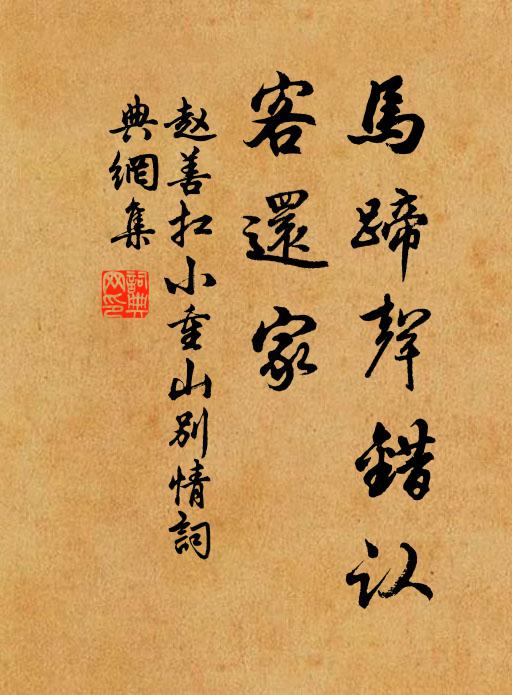 馬蹄聲錯认
客還家
赵善扛小重山别情詞
典網集
詞典网印